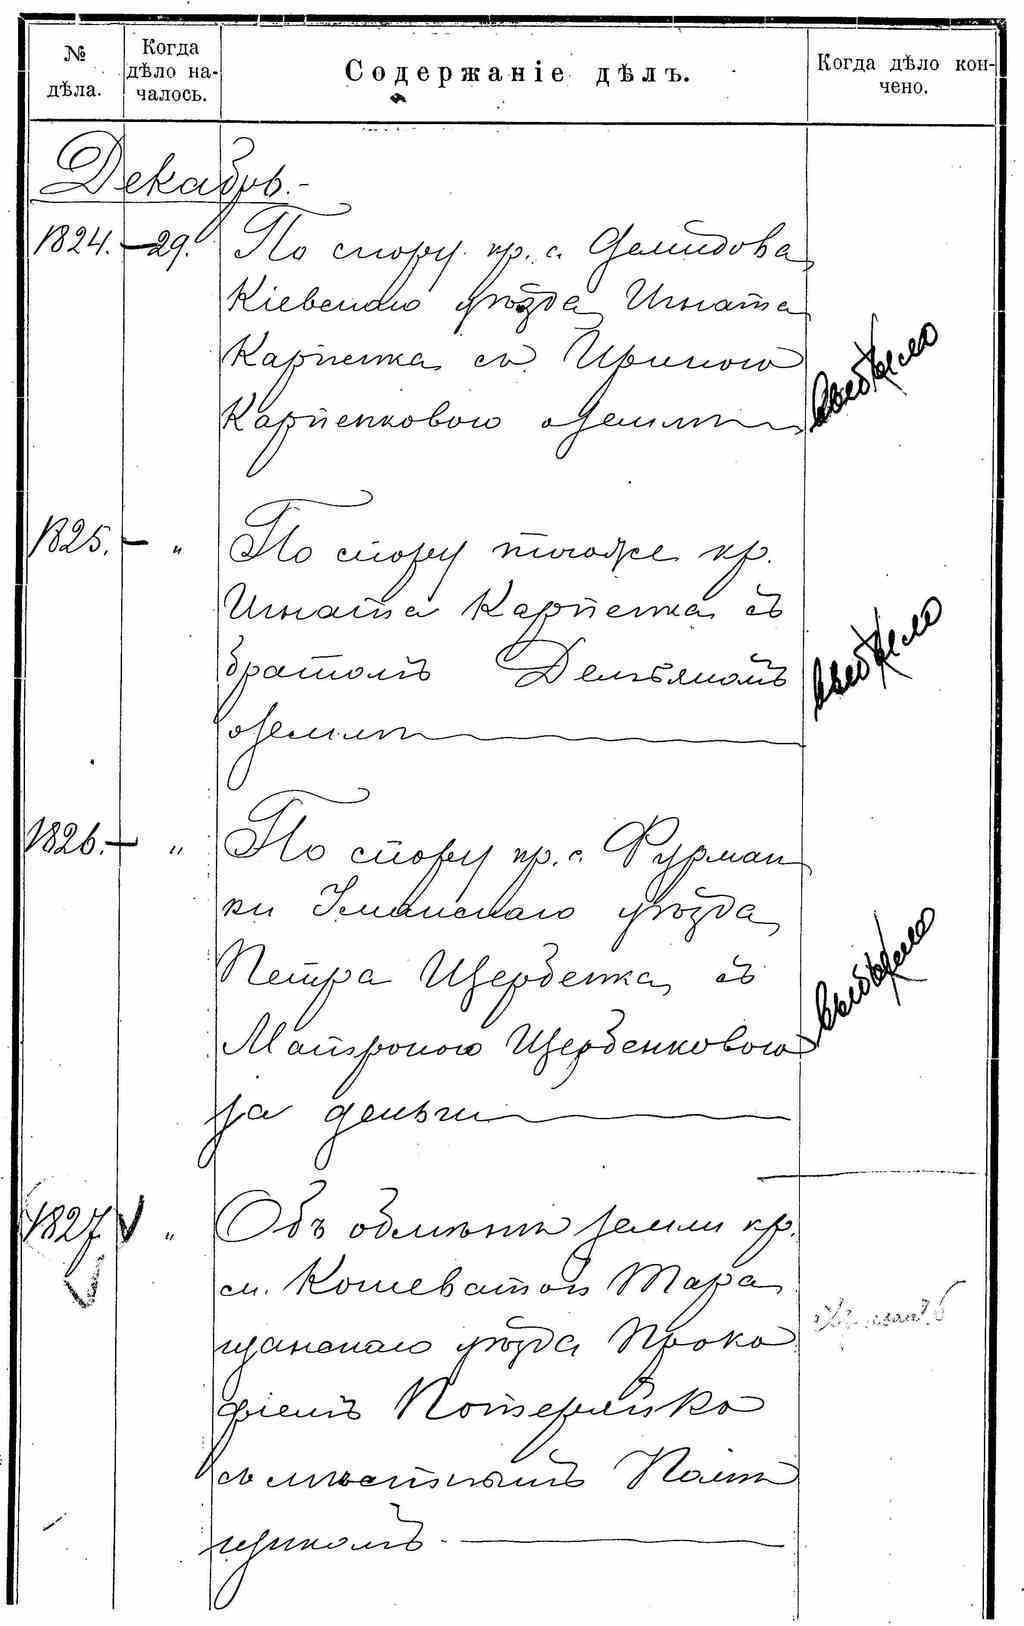 № дѣла.
Когда дѣло началось.
Содержаніе дѣлъ.
Когда дѣло кончено.
Декабрь.
1824. — 29. По спору кр. с. Демидова
Кіевскаго уѣзда Игната
Карпенка съ Ириною
Карпенковою о землѣ
выбыло
1825. — " По спору тогоже кр.
Игната Карпенка съ
братомъ Демьяномъ
о землѣ
выбыло
1826. — " По спору кр. с. Фурман
ки Уманскаго уѣзда
Петра Щербенка съ
Матроною Щербенковою
за деньги
выбыло
1827 V " Объ обмѣнѣ земли кр.
м. Кошеватой Тара
щанскаго уѣзда Проко
фіемъ Потерайко
съ мѣстнымъ Помѣ
щикомъ